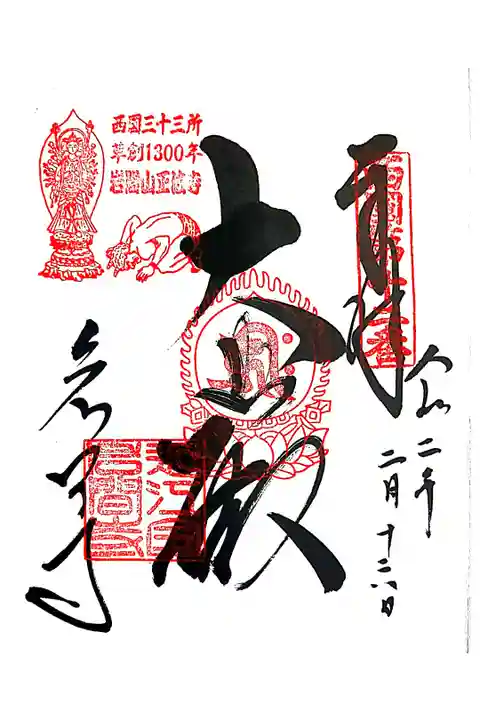 奉拝
西國第十二番
令和二年
二月十六日
大悲殿
西國三十三所
草創1300年
岩間山正法寺
岩間寺